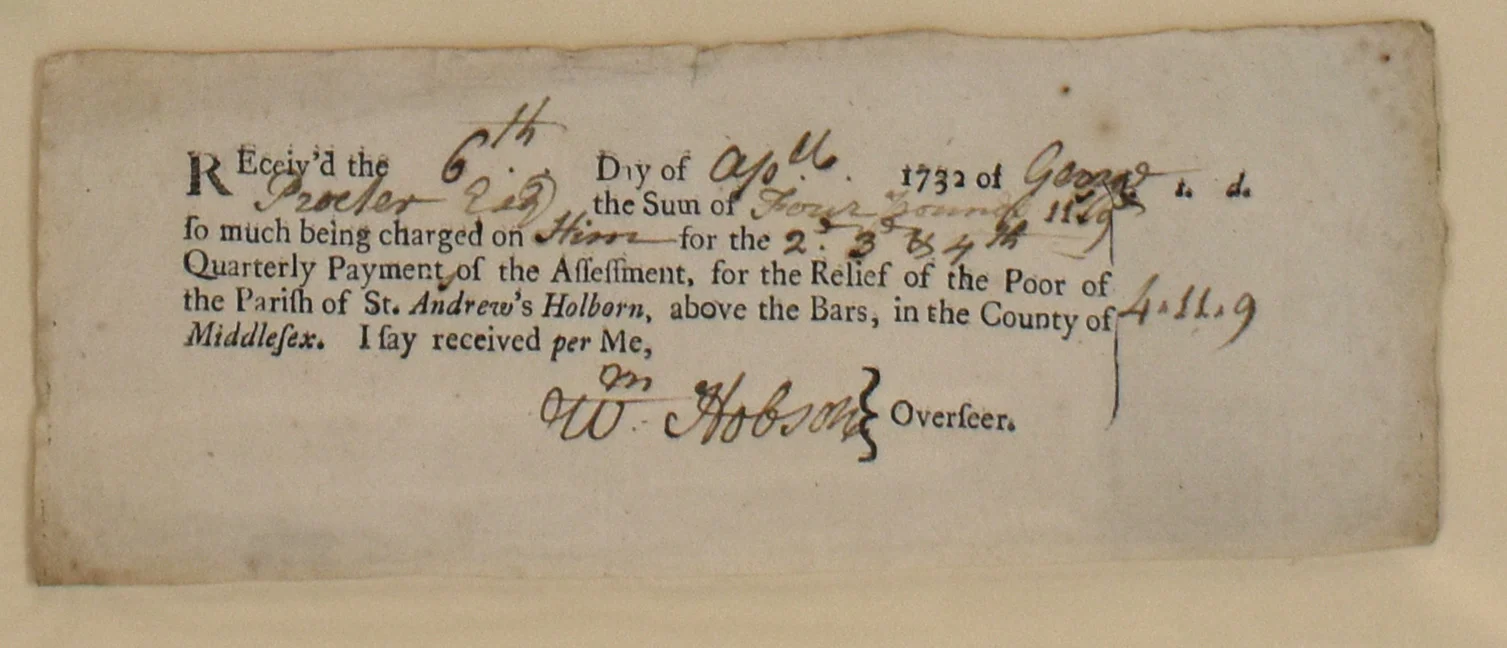 REceiv'd the 6th Day of Apll. 1732 of George l. s. d.
Procter Esq the Sum of Four Pounds 11s/9
ſo much being charged on Him for the 2d. 3d & 4th
Quarterly Payments of the Aſſeſſment, for the Relief of the Poor of
the Pariſh of St. Andrew's Holborn, above the Bars, in the County of 4.11.9
Middleſex. I ſay received per Me,
Wm. Hobson } Overſeer.